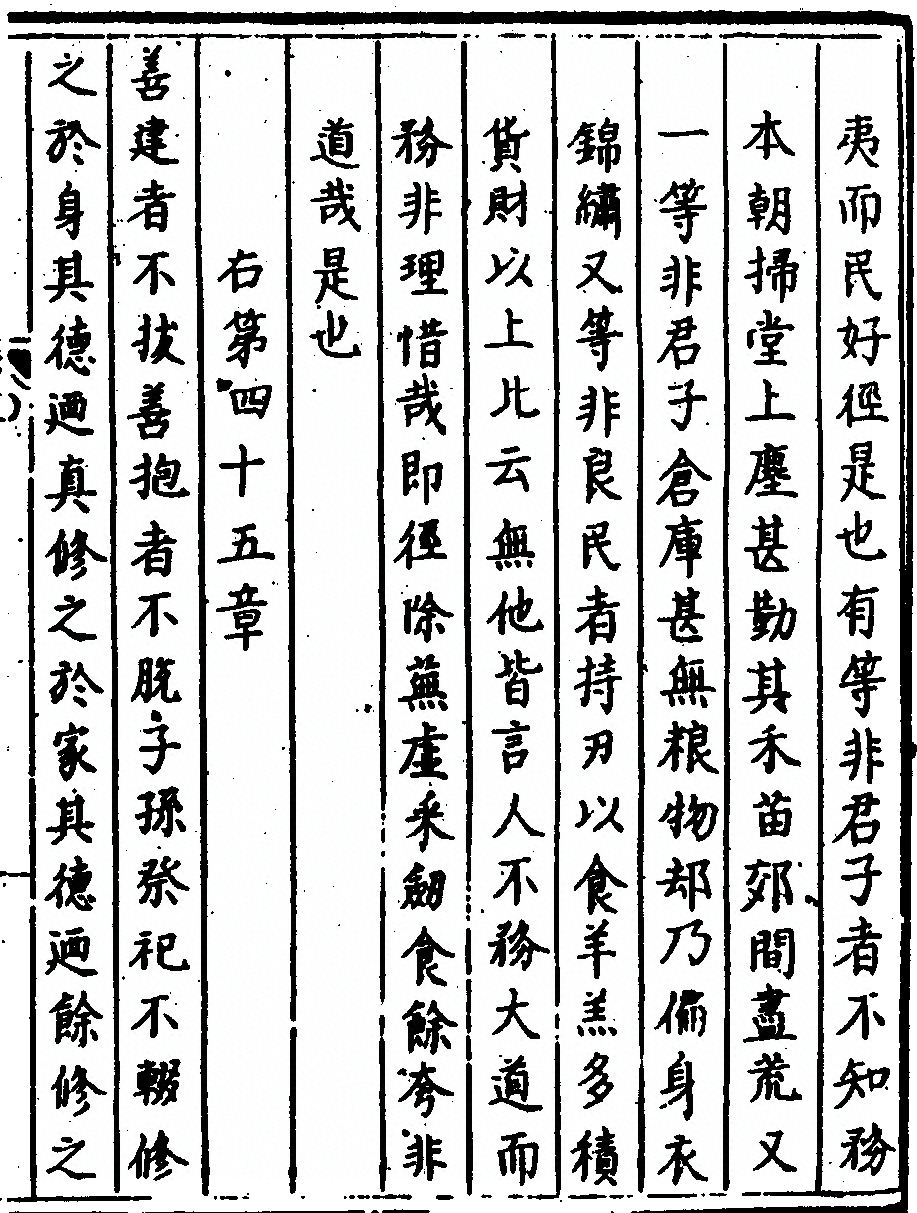 夷而民好徑是也有等非君子者不知務
本朝掃堂上塵甚勤其禾苗郊間盡荒又
一等非君子倉庫甚無粮物却乃偹身衣
錦繡又等非良民者持刃以食羊羔多積
貨財以上比云無他皆言人不務大道而
務非理惜哉即徑除蕪虛采劒食餘夸非
道哉是也
右第四十五章
善建者不拔善抱者不脫子孫祭祀不輟修
之於身其德廼真修之於家其德廼餘修之